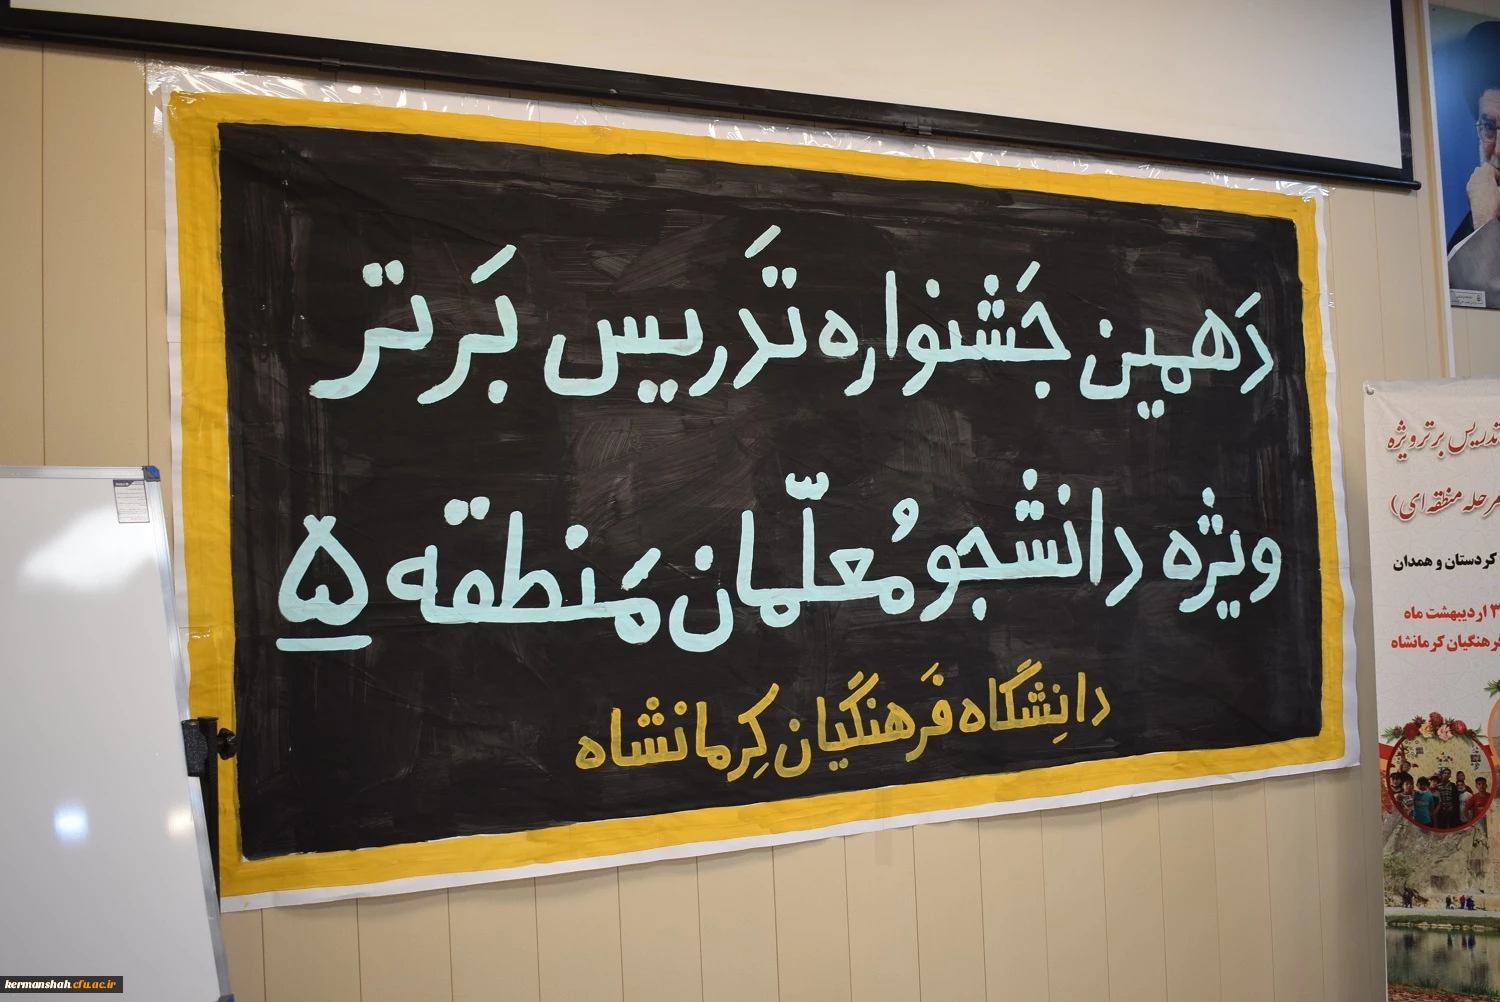 دَهمین جَشنواره تَدریس بَرتر
ویژه دانشجومُعلّمان مَنطقه ۵
دانِشگاه فَرهنگیان کِرمانشاه
تدریس برتر ویژه
مرحله منطقه ای)
کردستان و همدان
اردیبهشت ماه
فرهنگیان کرمانشاه
kermanshah.cfu.ac.ir